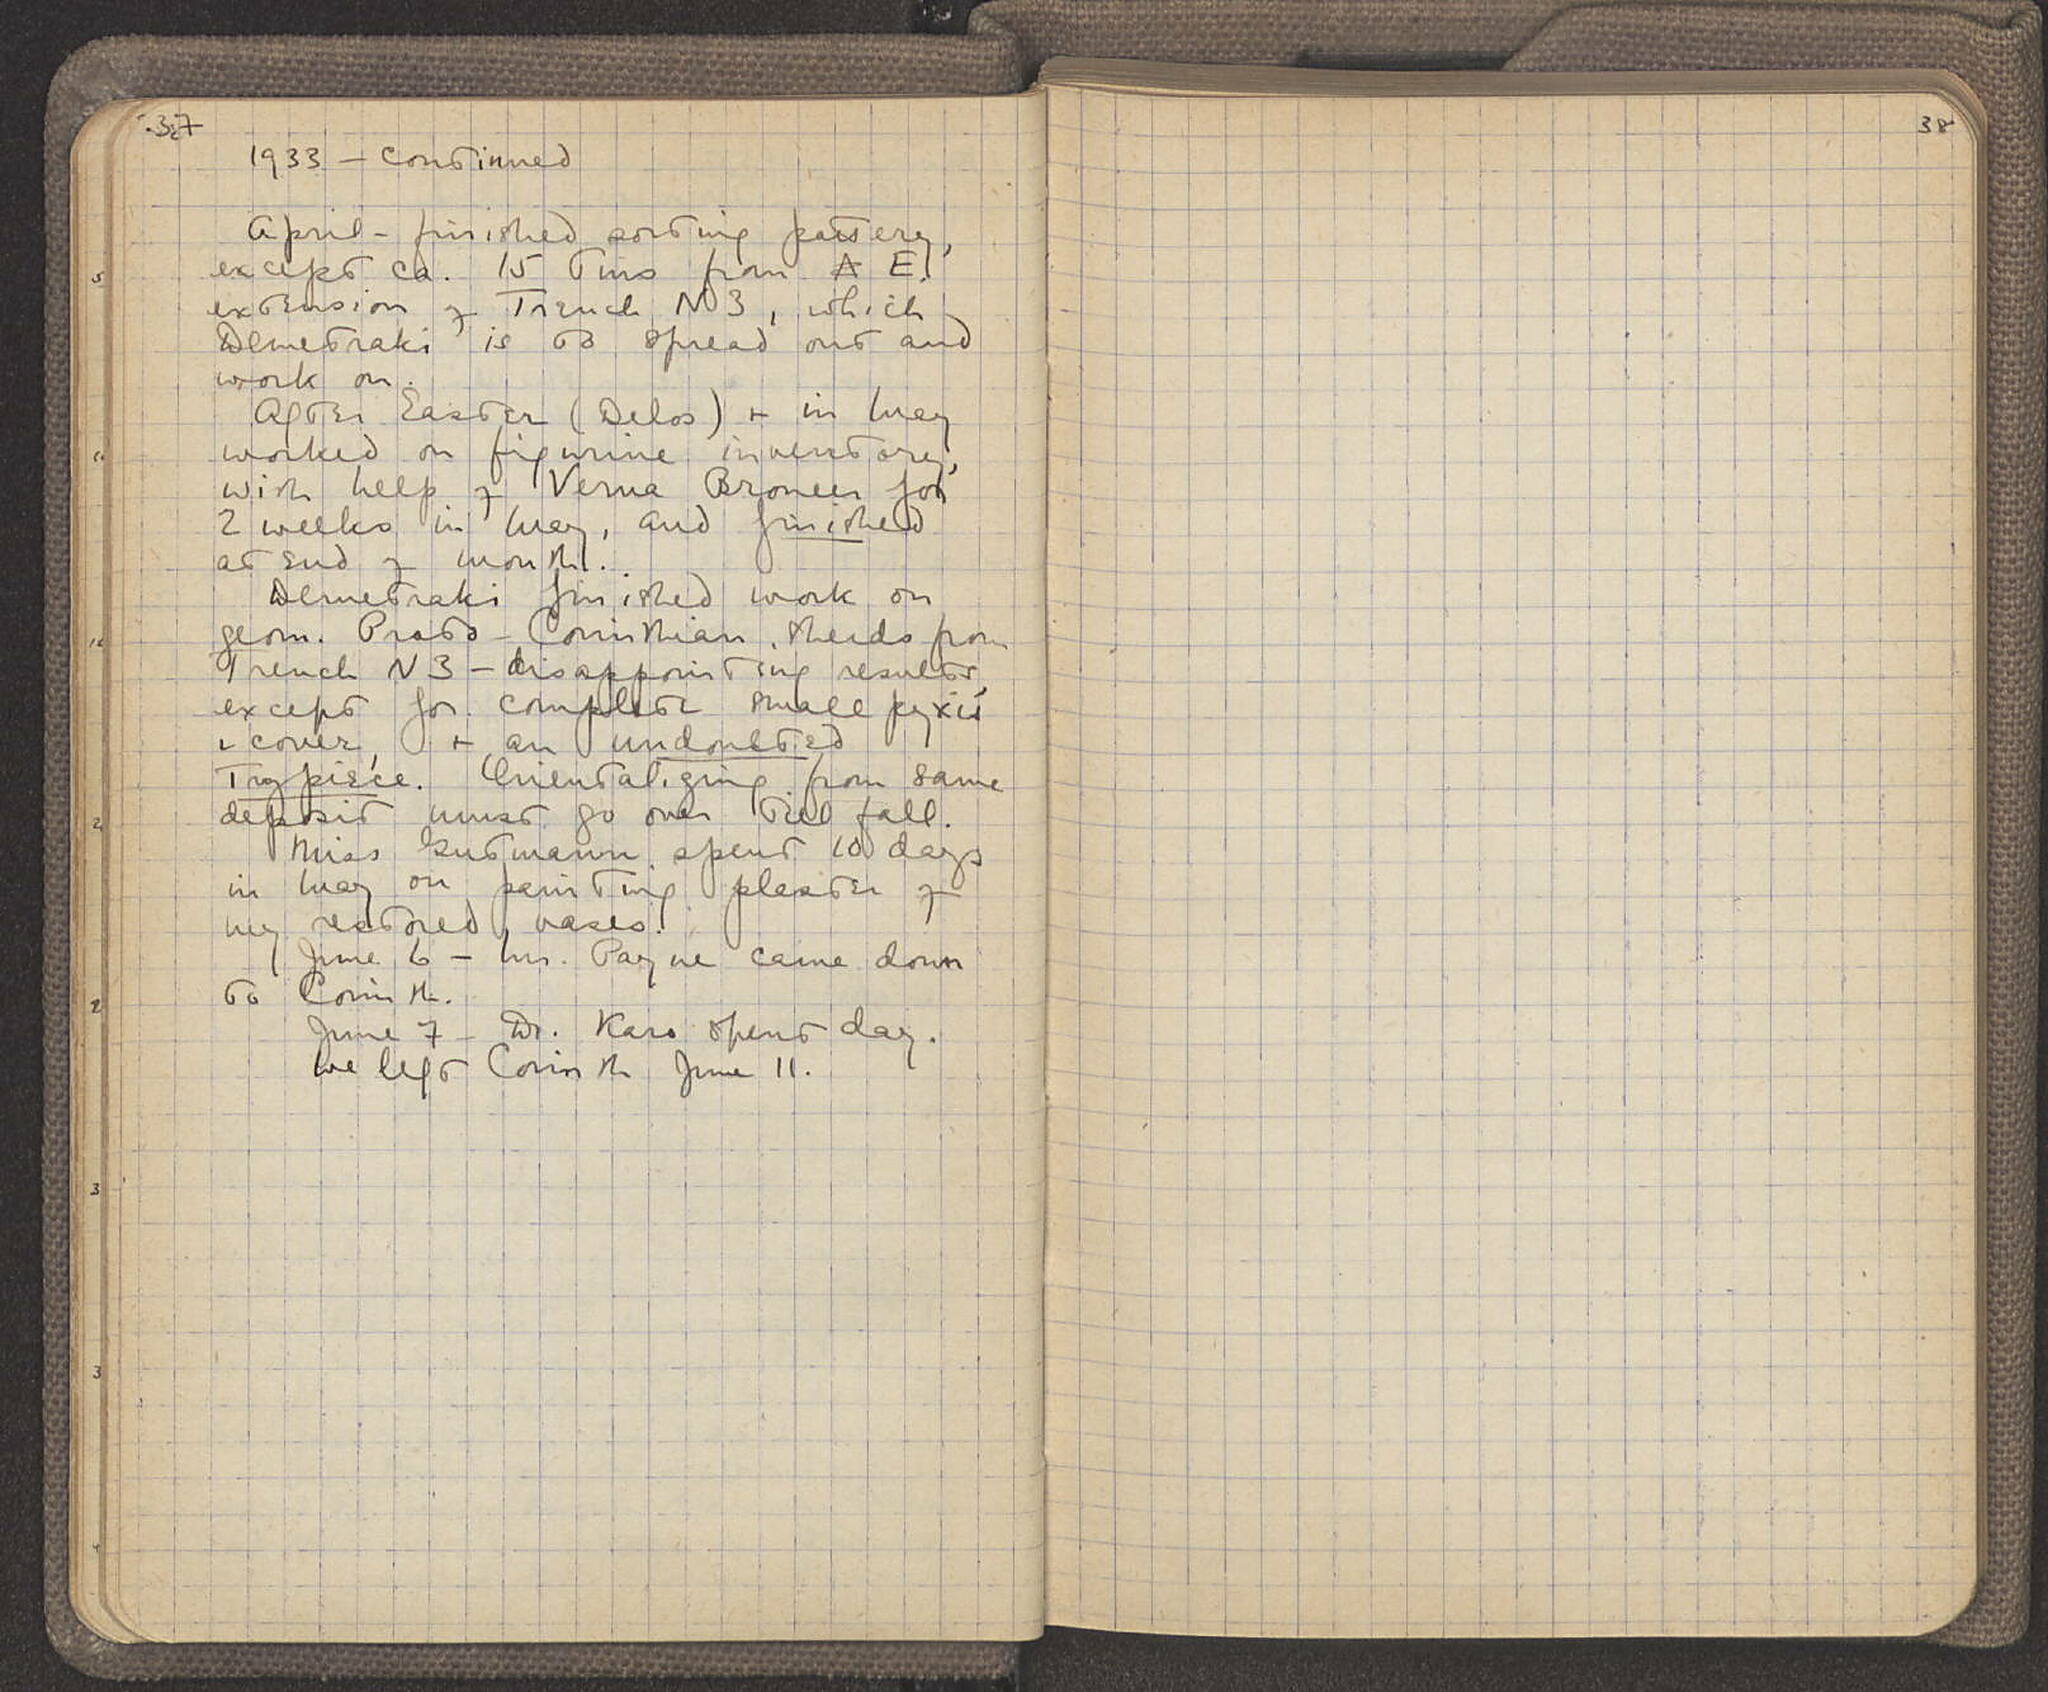 37
1933 – Continued
April – finished sorting pottery,
except ca. 15 tins from A E.
extension of Trench N 3, which
Demetraki is to spread out and
work on.
After Easter (Delos) + in May
worked on figurine inventory,
with help of Verna Broneer for
2 weeks in May, and finished
at end of month.
Demetraki finished work on
geom. Proto-Corinthian sherds from
Trench N 3 – disappointing results,
except for complete small pyxis
cover, + an undoubted
Try piece. Orientalizing from same
deposit must go over till fall.
Miss Gutmann spent 10 days
in May on painting plaster of
my restored vases.
June 6 – Mr. Payne came down
to Corinth.
June 7 – Dr. Karo spent day.
We left Corinth June 11.
5
3
3
38